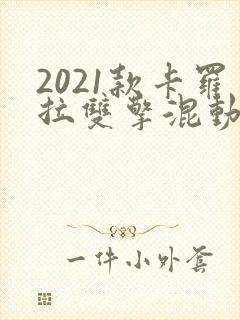 2021款卡羅
拉雙擎混動
一件小外套